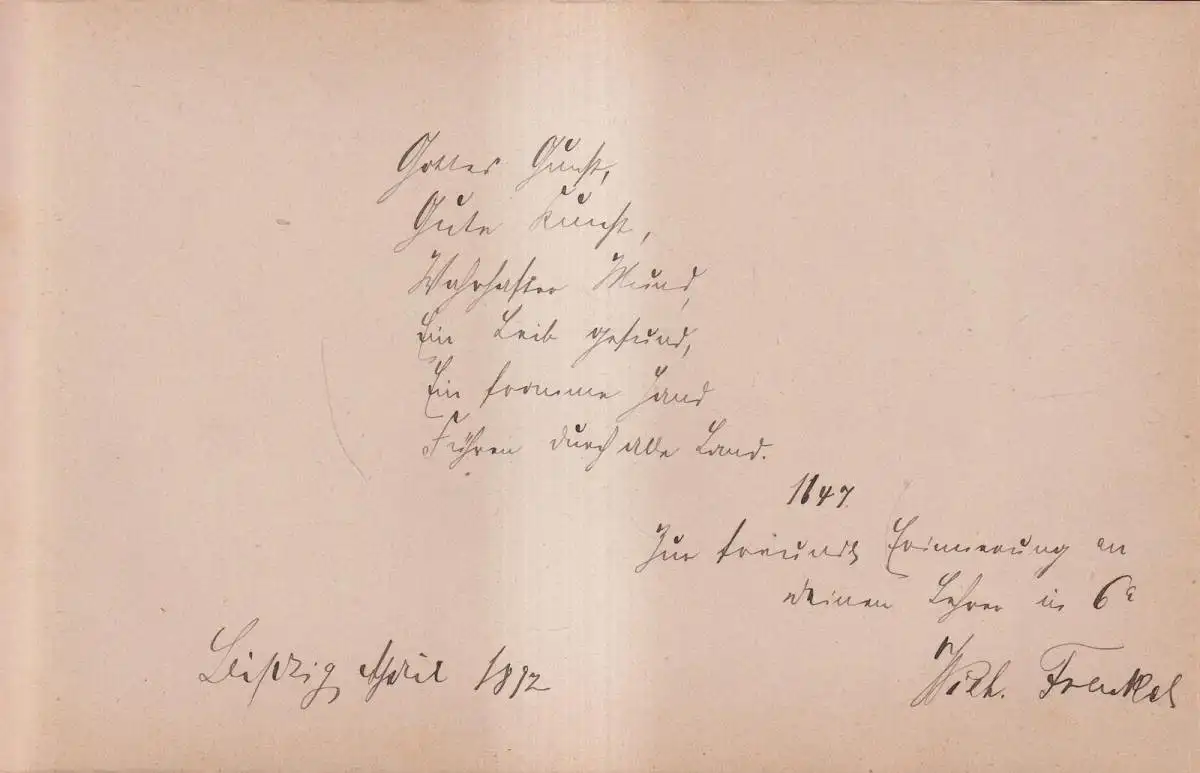 Gottes Gunst,
Gute Kunst,
Wahrhafter Mund,
Ein Leib gesund,
Ein fromme Hand
Führen durch alle Land.
1647
Zur freundl Erinnerung an
deinen Lehrer in 6a
Leipzig April 1892
Wilh. Frenkel